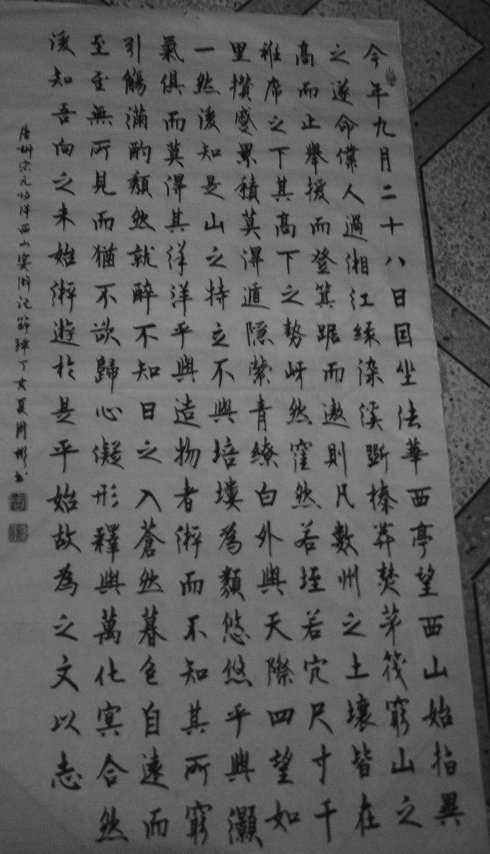 今年九月二十八日因坐法華西亭望西山始指異
之遂命僕人過湘江緣染溪斫榛莽焚茅筏窮山之
高而止攀援而登箕踞而遨則凡數州之土壤皆在
衽席之下其高下之勢岈然窪然若垤若穴尺寸千
里攢蹙累積莫得遁隱縈青繚白外與天際四望如
一然後知是山之特立不與培塿為類悠悠乎與灝
氣俱而莫得其洋洋乎與造物者游而不知其所窮
引觴滿酌頹然就醉不知日之入蒼然暮色自遠而
至至無所見而猶不欲歸心凝形釋與萬化冥合然
後知吾向之未始游遊於是乎始故為之文以志
唐柳宗元始得西山宴游記節錄丁亥夏周彬書